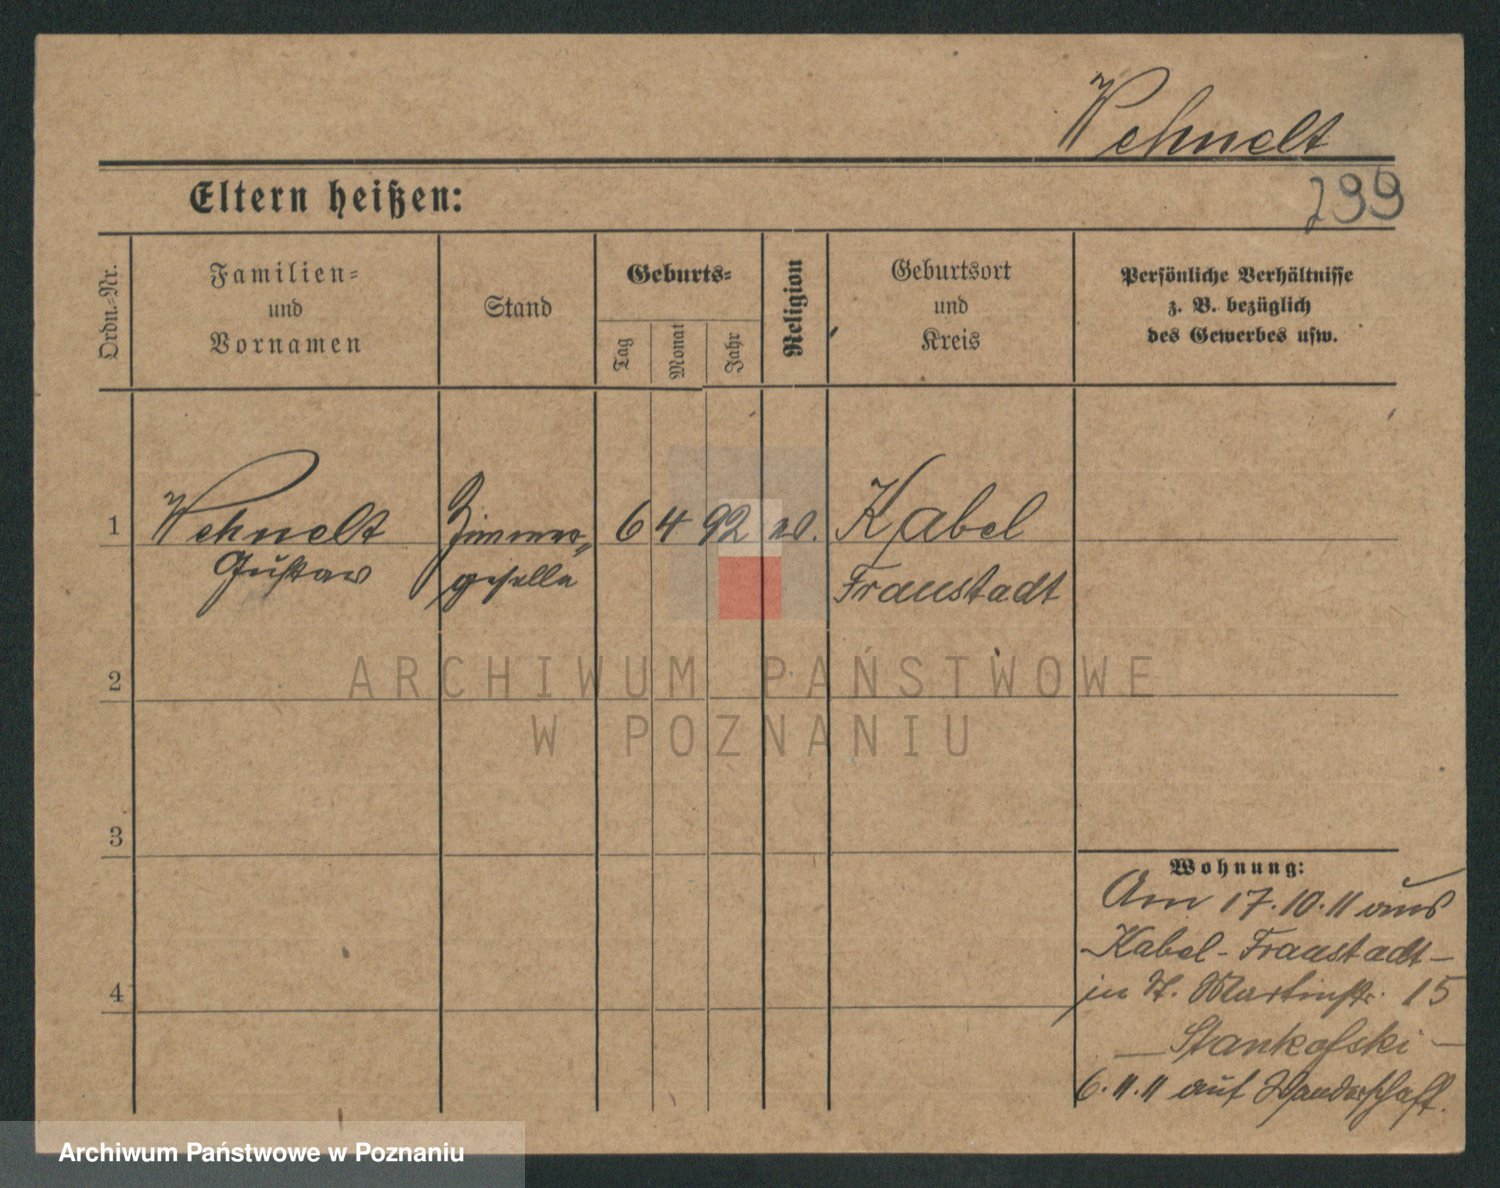 Wehnelt
299
Eltern heißen:
Ordn.-Nr.
Familien-
und
Vornamen
Stand
Geburts-
Tag
Monat
Jahr
Religion
Geburtsort
und
Kreis
Persönliche Verhältnisse
z. B. bezüglich
des Gewerbes usw.
1 Wehnelt Zimmer- 6 4 92 Kabel
Gustav geselle Fraustadt
2
3
4
Wohnung:
Am 17.10.11 aus
Kabel - Fraustadt -
in St. Martinstr. 15
Stankofski -
6.11.11 auf Wanderschaft.
ARCHIWUM PAŃSTWOWE
W POZNANIU
Archiwum Państwowe w Poznaniu